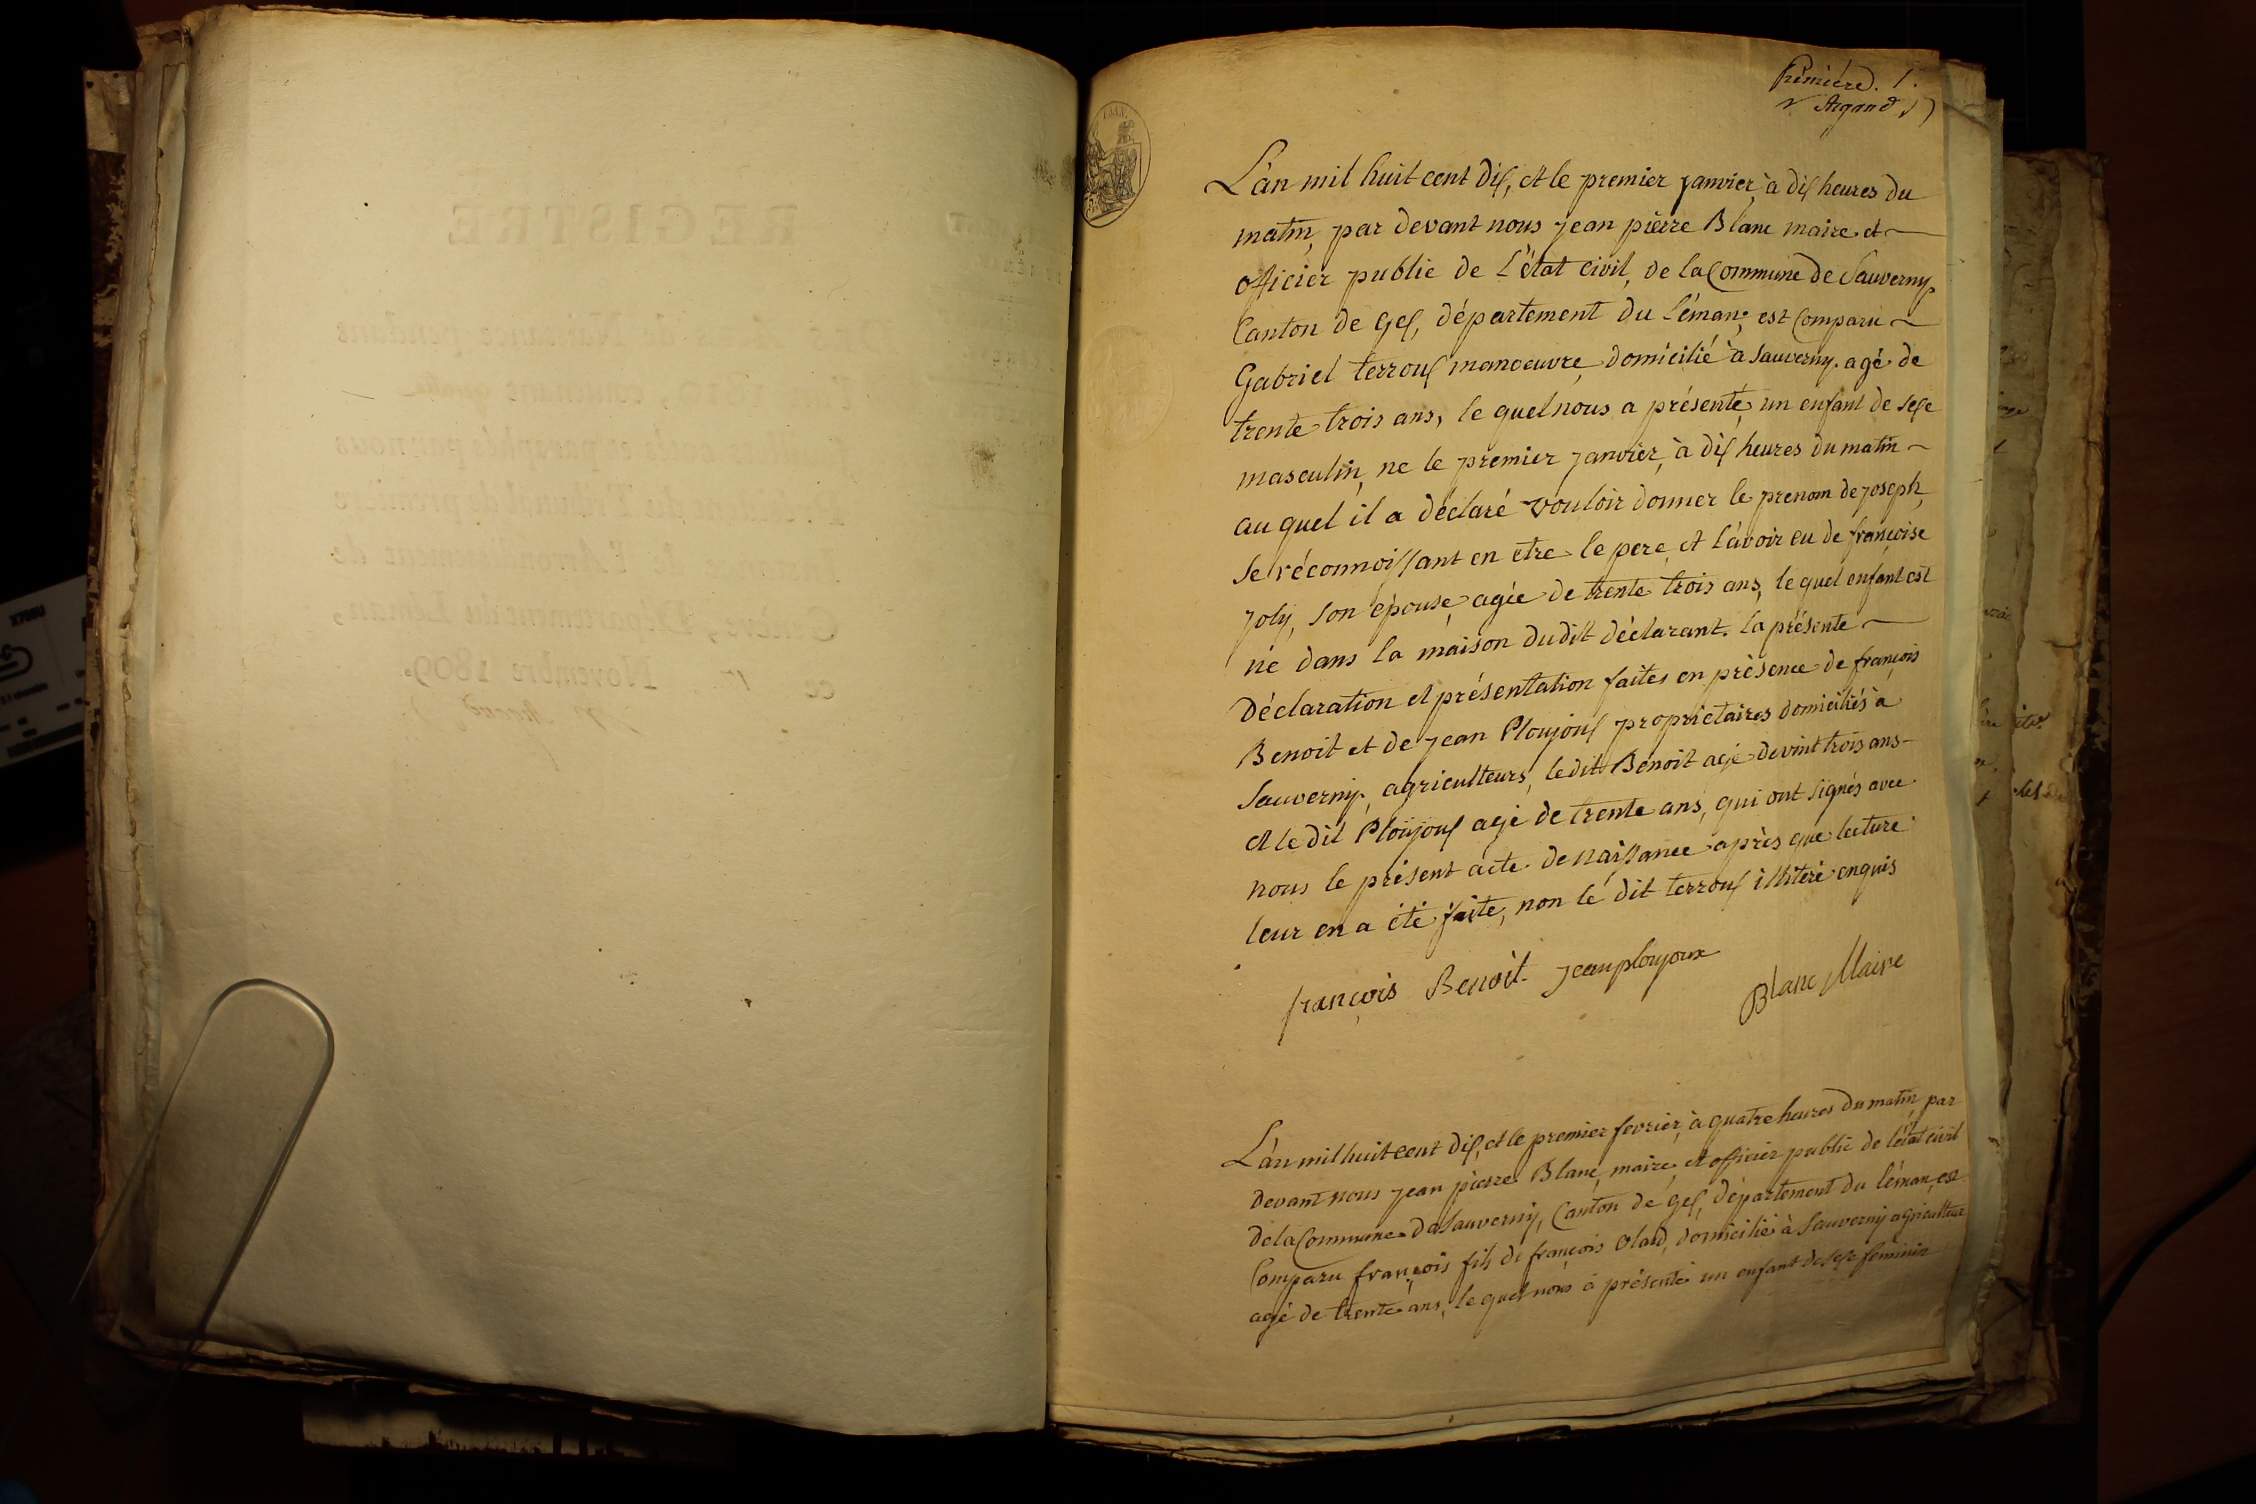 REGISTRE
Naissance pendant
contenant
et paraphé par nous
du Tribunal de première
l'Arrondissement de
Genève, Département du Léman,
ce 17 Novembre 1809.
Argand
Premiere. 1.
Argand
L'an mil huit cent dix, et le premier janvier, à dix heures du
matin, par devant nous jean pierre Blanc maire et
officier public de L'état civil, de la Commune de Sauverny,
Canton de Gex, département du Léman; est Comparu
Gabriel terroux manoeuvre, domicilié à Sauverny. agé de
trente trois ans, le quel nous a présenté, un enfant de sexe
masculin, ne le premier janvier, à dix heures du matin
au quel il a déclaré vouloir donner le prenom de joseph,
se réconnoissant en etre le pere, et l'avoir eu de françoise
joly, son epouse, agée de trente trois ans, le quel enfant est
né dans la maison dudit déclarant. la présente
Déclaration et présentation faites en présence de françois
Benoit et de jean Ploujoux proprietaires domiciliés à
Sauverny, agriculteurs, ledit Benoit agé de vint trois ans
et le dit Ploujoux agé de trente ans, qui ont signés avec
nous le présent acte de naissance après que lecture
leur en a été faite, non le dit terroux illiteré enquis
françois Benoit jean ploujoux
Blanc Maire
L'an mil huit cent dix, et le premier fevrier, à quatre heures du matin, par
devant nous jean pierre Blanc, maire, et officier public de l'état civil
de la Commune de Sauverny, Canton de Gex, département du léman, est
Comparu françois fils de françois olard, domicilié à Sauverny agriculteur
agé de trente ans, le quel nous à présenté un enfant de sexe feminin